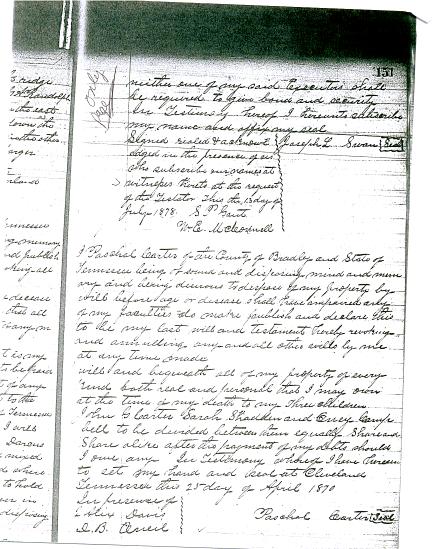 151
only
page
neither one of my said Executors shall
be required to give bond and security
In Testimony hereof I hereunto subscribe
my name and affix my seal
Signed sealed & acknowl Joseph L. Swan Seal
edged in the presence of us
who subscribe our names as
witnesses hereto at the request
of the Testator This the 13 day of
July 1878. S P Gant
W. C. McConnell
I Paschal Carter of the County of Bradley and State of
Tennessee being of sound and disposing mind and mem
ory and being desirous to dispose of my property by
will before age or disease shall have impaired any
of my faculties do make publish and declare this
to be my last will and testament hereby revoking
and annulling any and all other wills by me
at any time made
will and bequeath all of my property of every
kind both real and personal that I may own
at the time of my death to my three children
John G Carter Sarah Shadden and Caney Camp
bell to be divided between them equally Share and
Share alike after the payment of my debts should
I owe any. In Testimony whereof I have hereun
to set my hand and seal at Cleveland
Tennessee this 25 day of April 1870
In presence of
Davis Paschal Carter Seal
D. B. Oneil
ridge
the east
town the
Tennessee
memory
and publish
decease
that all
it is my
of any
to the
Tennessee
I will
mixed
d where
to hold
disposing